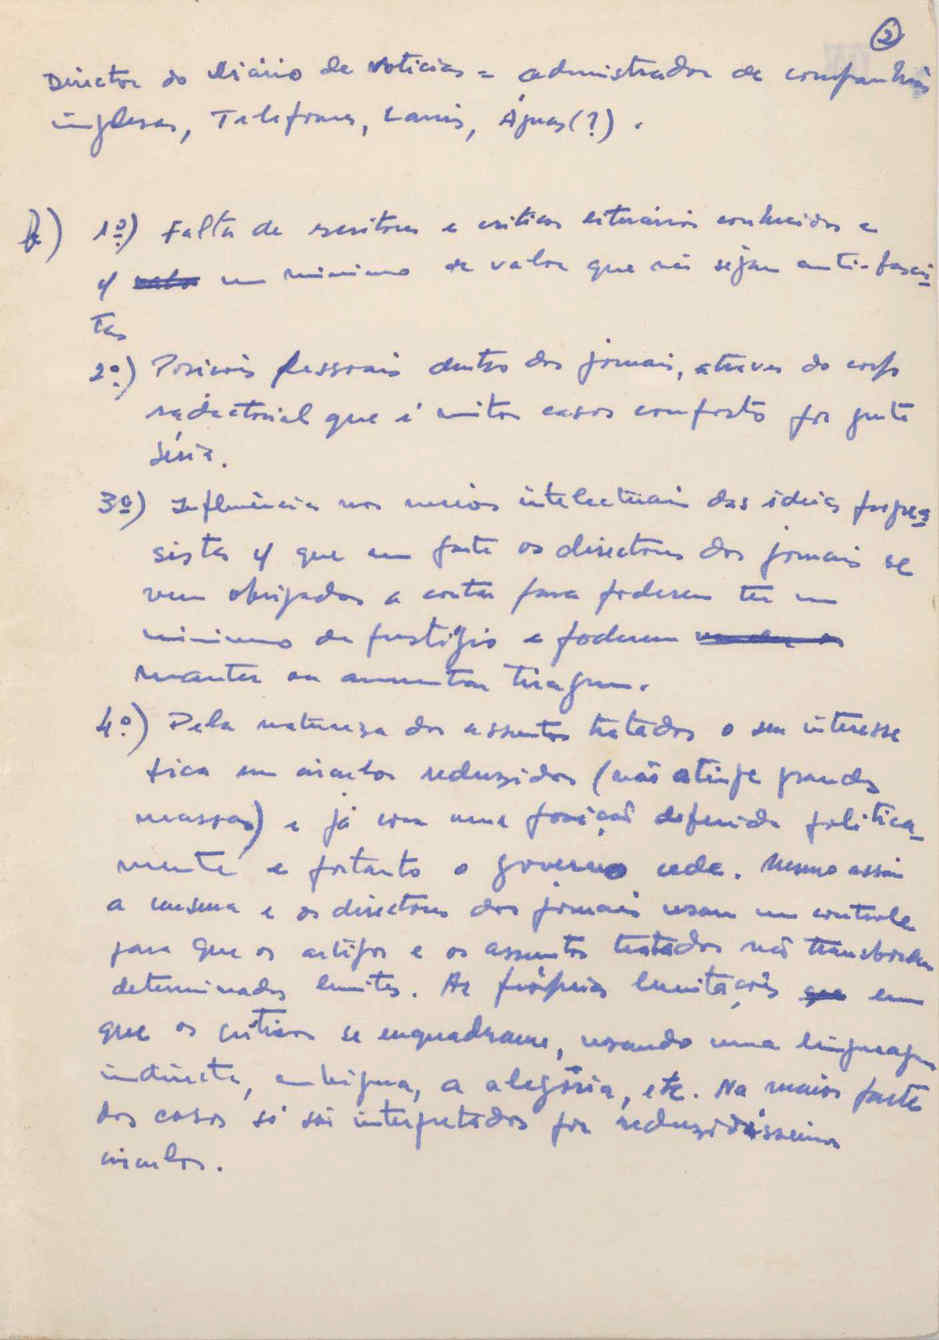 2
Director do Diário de Notícias = administrador de companhias
inglesas, Telefones, Carris, Águas(?).
b) 1º) Falta de escritores e críticos literários conhecidos e
c/ um mínimo de valor que não sejam anti-fascis-
tas
2º) Posições pessoais dentro dos jornais, atraves do corpo
redactorial que é muitos casos composto por gente
séria.
3º) Influência nos meios intelectuais das ideias progres-
sistas c/ que em parte os directores dos jornais se
vem obrigados a contar para poderem ter um
minimo de prestígio e poderem
manter ou aumentar tiragem.
4º) Pela natureza dos assuntos tratados o seu interesse
fica em circulos reduzidos (não atinge grandes
massas) e já com uma posição definida politica-
mente e portanto o governo cede. Mesmo assim
a censura e os directores dos jornais usam um controle
para que os artigos e os assuntos tratados não transbordem
determinados limites. As próprias limitações em
que os críticos se enquadrame, usando uma linguagem
indirecta, ambigua, a alegória, etc. Na maior parte
dos casos só são interpretados por reduzidíssimos
circulos.